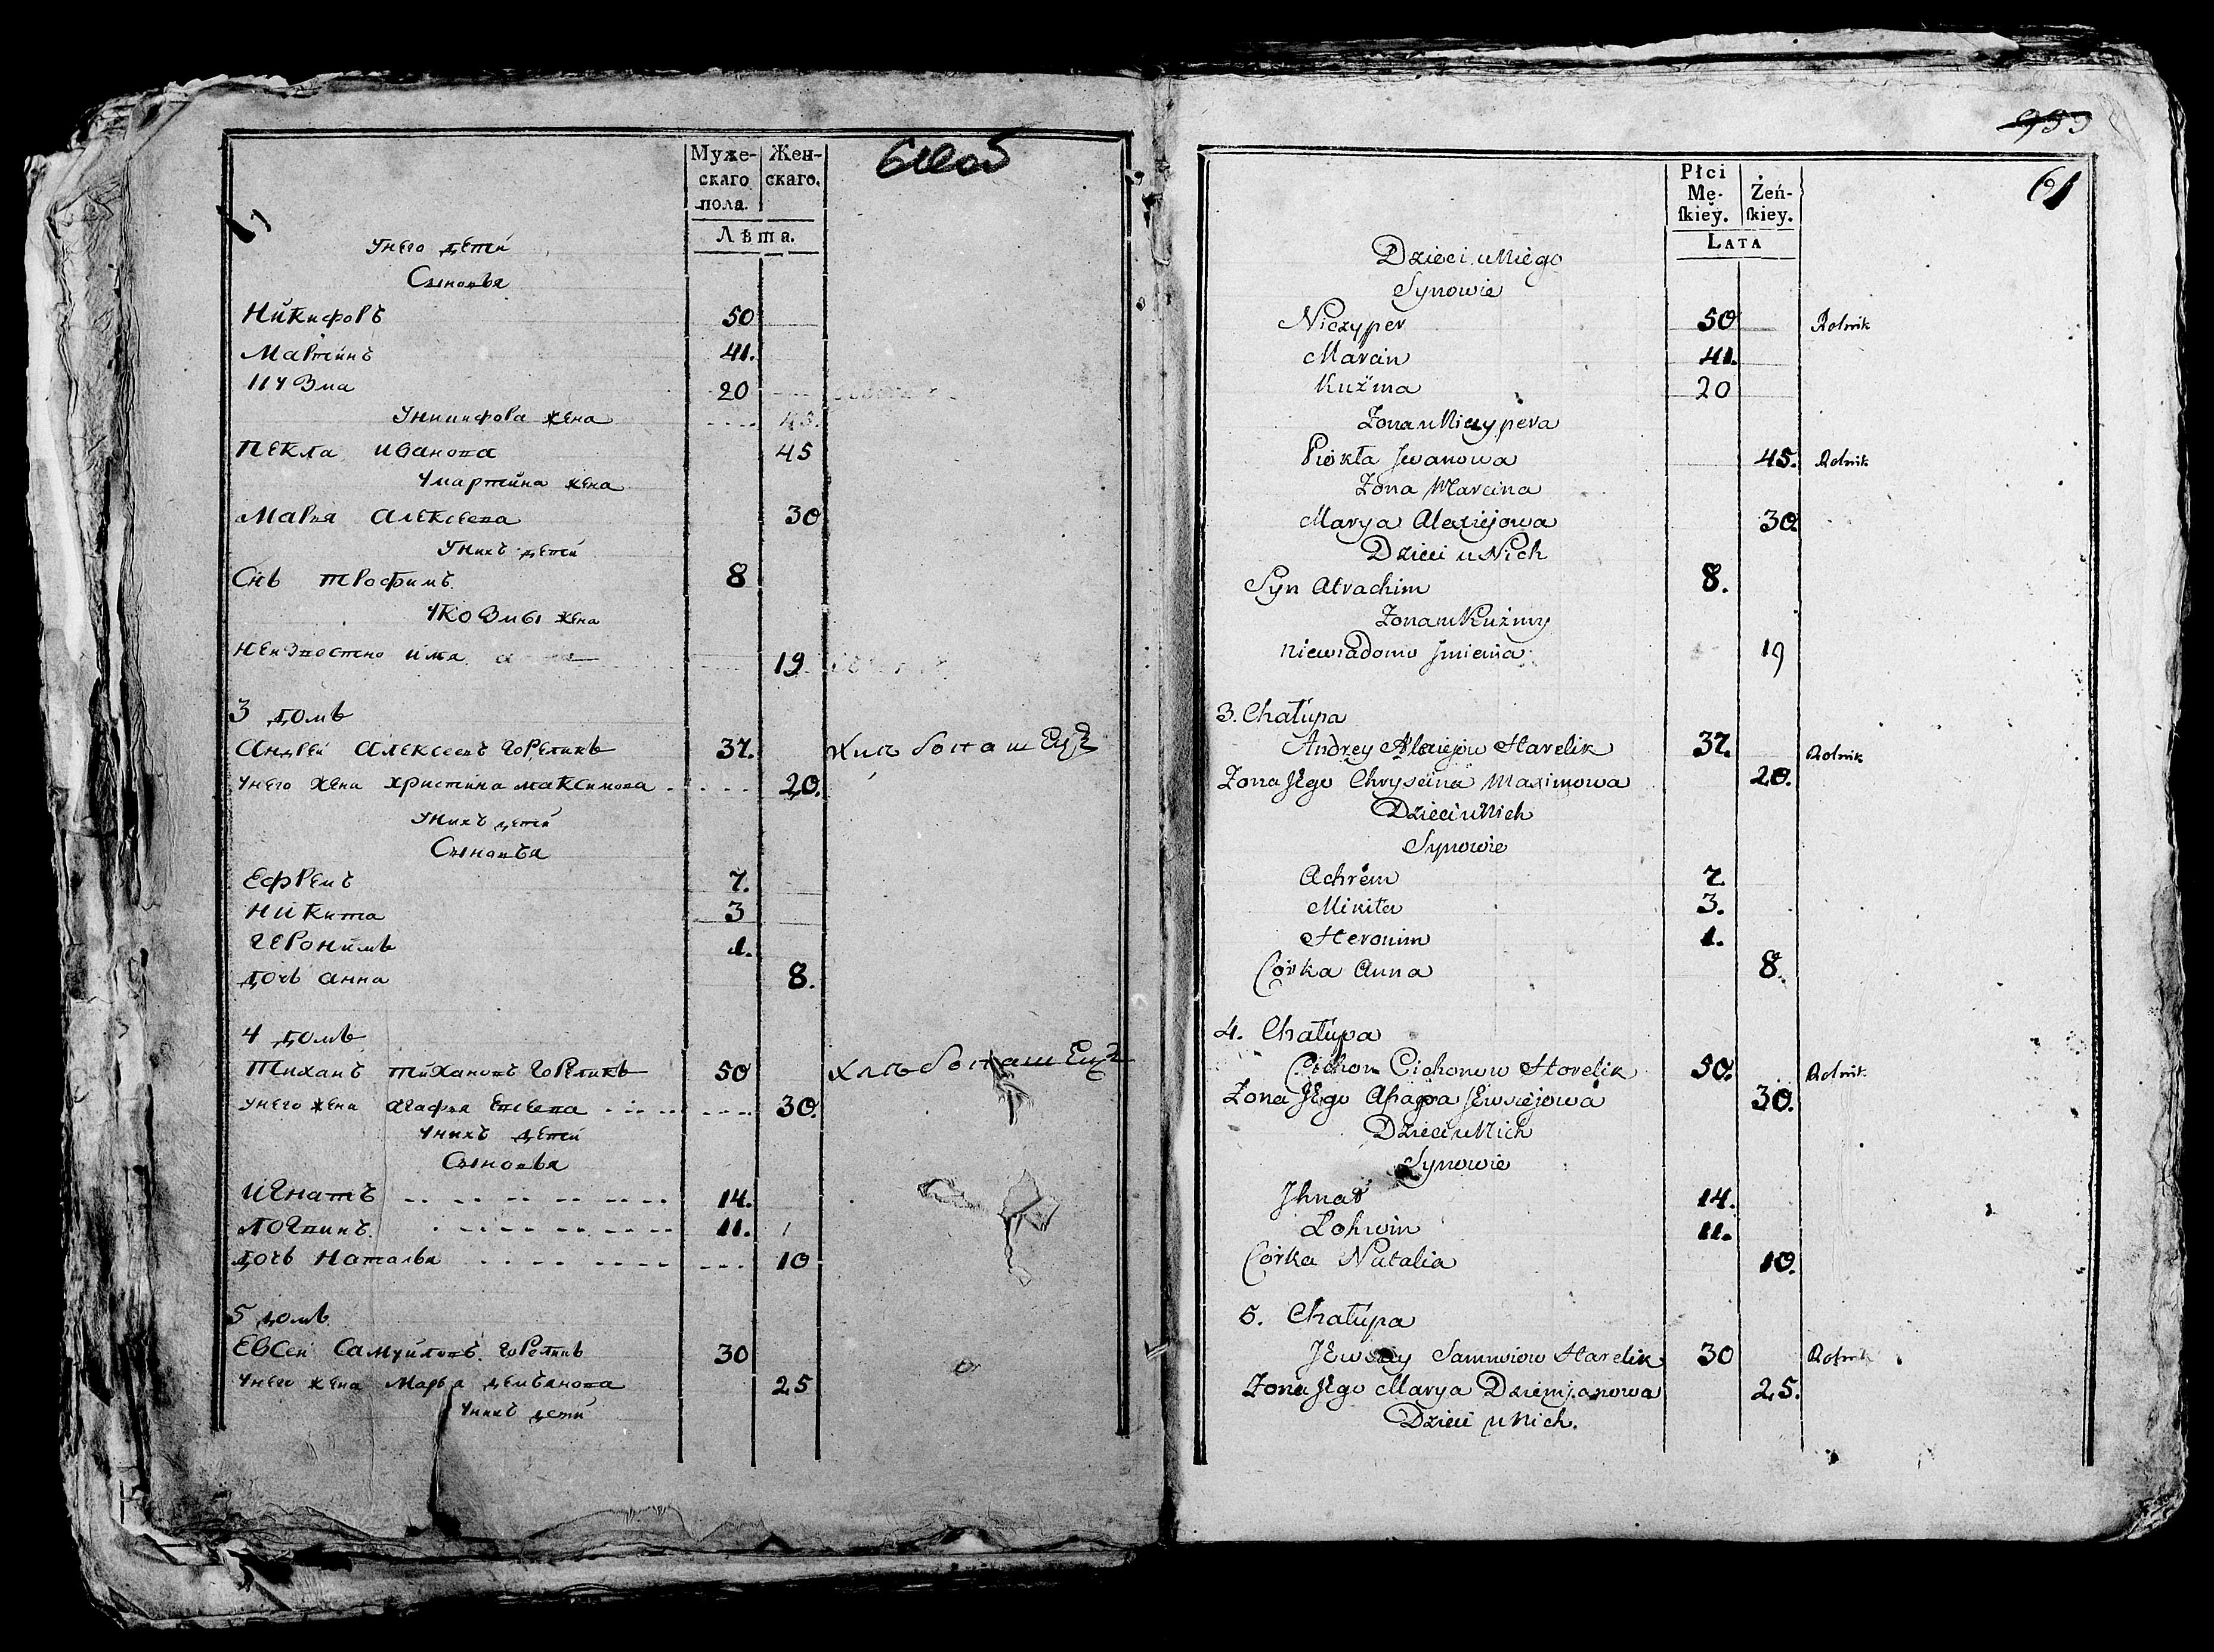 Муже-
скаго
пола.
Жен-
скаго.
Лѣта.
унего дети
Сыновья
Никифоръ 50
Мартинъ 41.
Кузма 20
Уникифора жена
Пекла Иванова 45
Умартина жена
Марья Алексеева 30
Унихъ дети
Снъ Трофимъ 8
Укозмы жена
Неизвестно имя 19
3 домъ
Андрей Алексеевъ Гореликъ 37. Хлебопашецъ
Унего жена Христина Максимова 20.
Унихъ дети
Сыновья
Ефремъ 7.
Никита 3
Геронимъ 1.
дочь Анна 8.
4 домъ
Тиханъ Тихановъ Гореликъ 50 Хлебопашецъ
Унего жена Агафья Евсеева 30.
Унихъ дети
Сыновья
Игнатъ 14.
Логвинъ 11.
дочь Наталья 10
5 домъ
Евсеи Самуйловъ Горелик 30
Унего жена Марья Демьанова 25
Унихъ дети
61
Płci
Mę-
ſkiey.
Żeń-
ſkiey.
LATA
Dzieci u Niego
Synowie
Niczyper 50 Rolnik
Marcin 41.
Kuźma 20
Żona u Niczypera
Piokła Jwanowa 45. Rolnik
Żona Marcina
Marya Alexiejowa 30
Dzieci u Nich
Syn Atrachim 8.
Żona u Kuźmy
niewiadomo Jmienia 19
3. Chałupa
Andrzey Alexiejow Harelik 37. Rolnik
Żona JEgo Chryscina Maximowa 20.
Dzieci u Nich
Synowie
Achrem 7
Mikita 3.
Heronim 1.
Córka Anna 8.
4. Chałupa
Cichon Cichonow Horelik 50. Rolnik
Żona JEgo Ahapa JEwsiejowa 30.
Dzieci u Nich
Synowie
Jhnat 14.
Łohwin 11.
Córka Natalia 10.
5. Chałupa
JEwsey Samuiow Harelik 30 Rolnik
Żona JEgo Marya Dziemjanowa 25.
Dzieci u Nich.